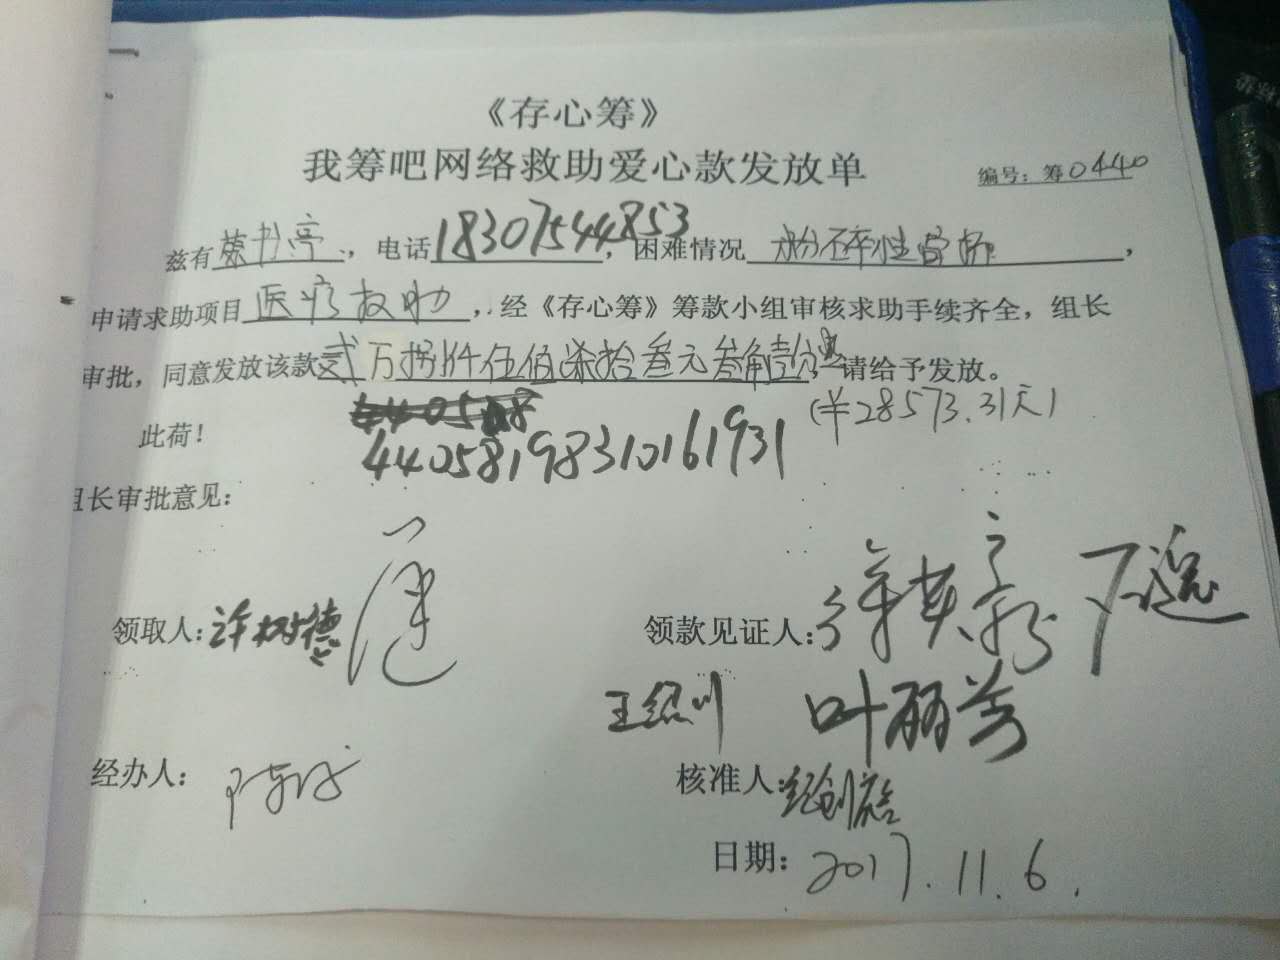 《存心筹》
我筹吧网络救助爱心款发放单
编号:筹0440
兹有 书亭,电话18307544853,困难情况 粉碎性骨折,
申请求助项目医疗救助,经《存心筹》筹款小组审核求助手续齐全,组长
审批,同意发放该款贰万捌仟伍佰柒拾叁元叁角壹分,请给予发放。
(¥28573.31元)
此荷!
440581198310161931
组长审批意见:
领取人:许树德
领款见证人:
王绍川 叶丽芳
经办人:
核准人:
日期:2017.11.6.